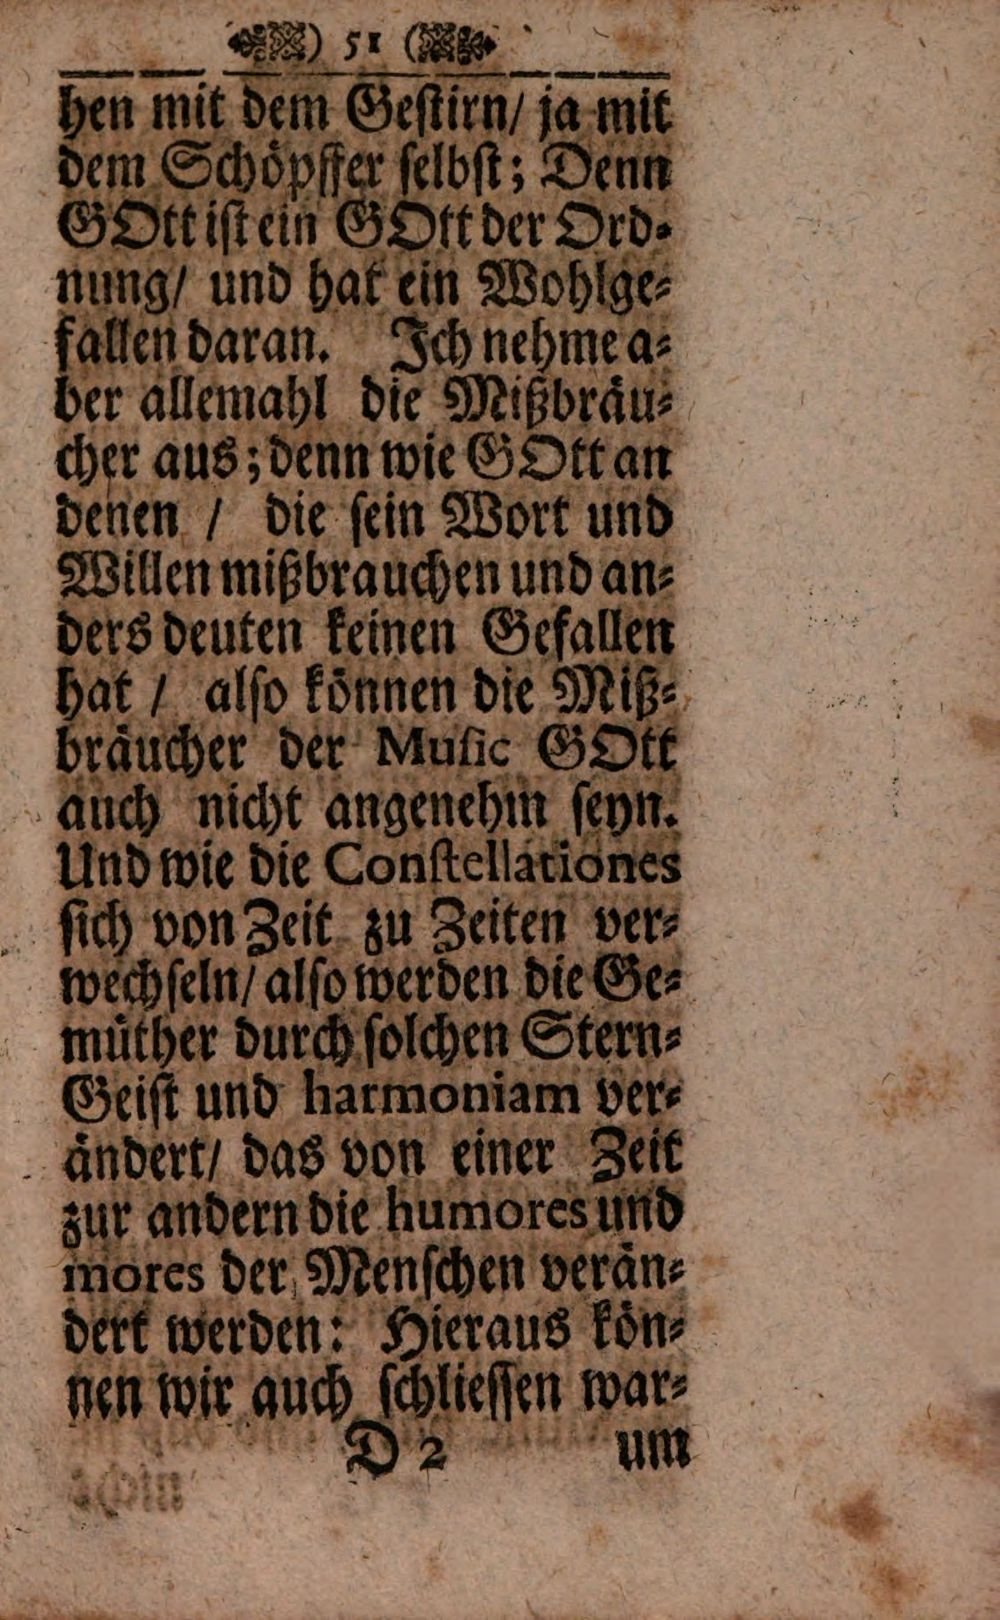 ) 51 (
hen mit dem Gestirn/ ja mit
dem Schöpffer selbst; Denn
GOtt ist ein GOtt der Ord-
nung/ und hat ein Wohlge-
fallen daran. Ich nehme a-
ber allemahl die Mißbräu-
cher aus; denn wie GOtt an
denen / die sein Wort und
Willen mißbrauchen und an-
ders deuten keinen Gefallen
hat / also können die Miß-
bräucher der Music GOtt
auch nicht angenehm seyn.
Und wie die Constellationes
sich von Zeit zu Zeiten ver-
wechseln/ also werden die Ge-
müther durch solchen Stern-
Geist und harmoniam ver-
ändert/ das von einer Zeit
zur andern die humores und
mores der Menschen verän-
dert werden: Hieraus kön-
nen wir auch schliessen war-
D 2 um